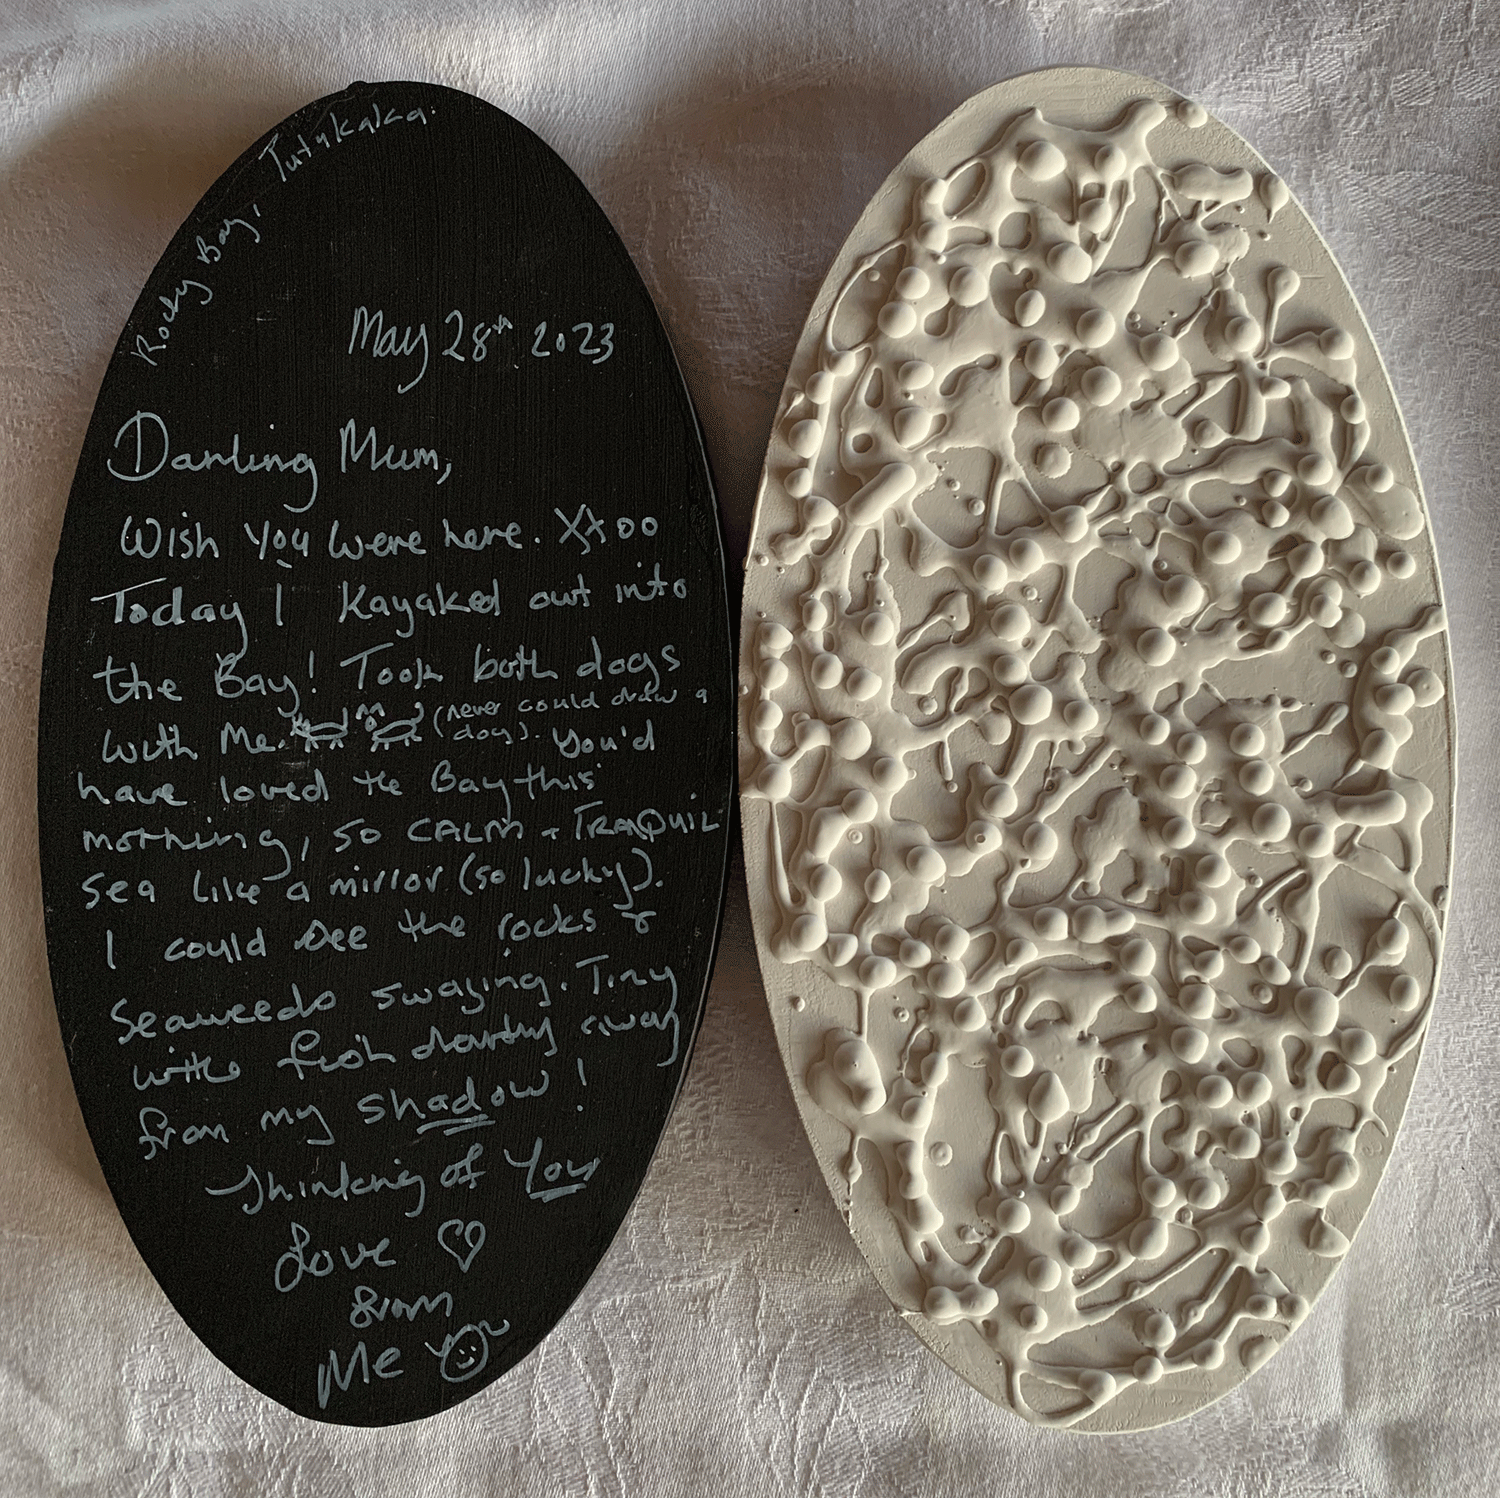 Rocky Bay, Tutukaka.
May 28th 2023
Darling Mum,
Wish you were here. XXOO
Today I Kayaked out into
the Bay! Took both dogs
with Me. (never could draw a
dog). You'd
have loved the Bay this
morning, so CALM + TRANQUIL
sea like a mirror (so lucky).
I could see the rocks &
Seaweeds swaying. Tiny
little fish darting away
from my shadow!
Thinking of You
Love
from
Me